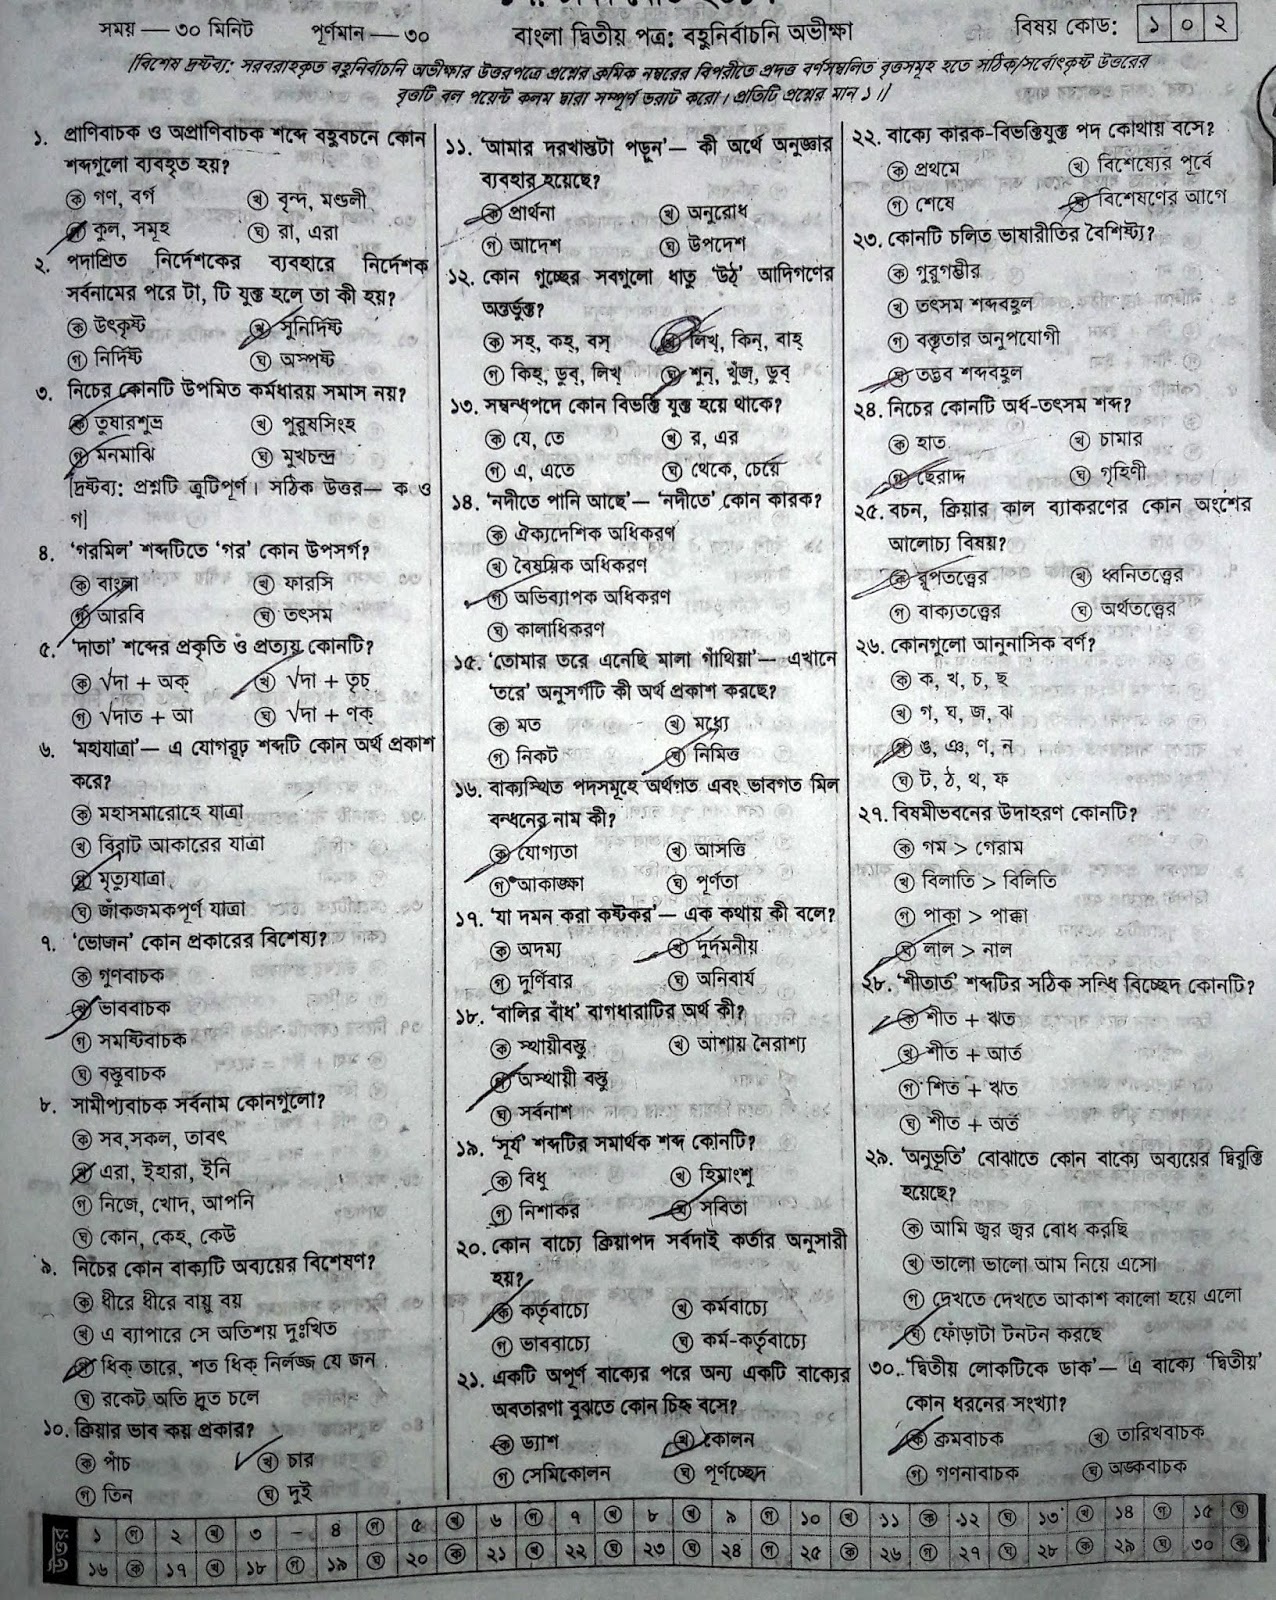 সময় — ৩০ মিনিট
পূর্ণমান — ৩০
বাংলা দ্বিতীয় পত্র: বহুনির্বাচনি অভীক্ষা
বিষয় কোড: ১ ০ ২
[বিশেষ দ্রষ্টব্য: সরবরাহকৃত বহুনির্বাচনি অভীক্ষার উত্তরপত্রে প্রশ্নের ক্রমিক নম্বরের বিপরীতে প্রদত্ত বর্ণসম্বলিত বৃত্তসমূহ হতে সঠিক/সর্বোৎকৃষ্ট উত্তরের
বৃত্তটি বল পয়েন্ট কলম দ্বারা সম্পূর্ণ ভরাট করো। প্রতিটি প্রশ্নের মান ১।]
১. প্রাণিবাচক ও অপ্রাণিবাচক শব্দে বহুবচনে কোন
শব্দগুলো ব্যবহৃত হয়?
ক গণ, বর্গ খ বৃন্দ, মণ্ডলী
গ কুল, সমূহ ঘ রা, এরা
২. পদাশ্রিত নির্দেশকের ব্যবহারে নির্দেশক
সর্বনামের পরে টা, টি যুক্ত হলে তা কী হয়?
ক উৎকৃষ্ট খ সুনির্দিষ্ট
গ নির্দিষ্ট ঘ অস্পষ্ট
৩. নিচের কোনটি উপমিত কর্মধারয় সমাস নয়?
ক তুষারশুভ্র খ পুরুষসিংহ
গ মনমাঝি ঘ মুখচন্দ্র
[দ্রষ্টব্য: প্রশ্নটি ত্রুটিপূর্ণ। সঠিক উত্তর— ক ও
গ]
৪. ‘গরমিল’ শব্দটিতে ‘গর’ কোন উপসর্গ?
ক বাংলা খ ফারসি
গ আরবি ঘ তৎসম
৫. ‘দাতা’ শব্দের প্রকৃতি ও প্রত্যয় কোনটি?
ক √দা + অক্ খ √দা + তৃচ্
গ √দাত + আ ঘ √দা + ণক্
৬. ‘মহাযাত্রা’— এ যোগরূঢ় শব্দটি কোন অর্থ প্রকাশ
করে?
ক মহাসমারোহে যাত্রা
খ বিরাট আকারের যাত্রা
গ মৃত্যুযাত্রা
ঘ জাঁকজমকপূর্ণ যাত্রা
৭. ‘ভোজন’ কোন প্রকারের বিশেষ্য?
ক গুণবাচক
খ ভাববাচক
গ সমষ্টিবাচক
ঘ বস্তুবাচক
৮. সামীপ্যবাচক সর্বনাম কোনগুলো?
ক সব,সকল, তাবৎ
খ এরা, ইহারা, ইনি
গ নিজে, খোদ, আপনি
ঘ কোন, কেহ, কেউ
৯. নিচের কোন বাক্যটি অব্যয়ের বিশেষণ?
ক ধীরে ধীরে বায়ু বয়
খ এ ব্যাপারে সে অতিশয় দুঃখিত
গ ধিক্ তারে, শত ধিক্ নির্লজ্জ যে জন
ঘ রকেট অতি দ্রুত চলে
১০. ক্রিয়ার ভাব কয় প্রকার?
ক পাঁচ খ চার
গ তিন ঘ দুই
১১. ‘আমার দরখাস্তটা পড়ুন’— কী অর্থে অনুজ্ঞার
ব্যবহার হয়েছে?
ক প্রার্থনা খ অনুরোধ
গ আদেশ ঘ উপদেশ
১২. কোন গুচ্ছের সবগুলো ধাতু ‘উঠ্’ আদিগণের
অন্তর্ভুক্ত?
ক সহ্, কহ্, বস্ খ লিখ্, কিন্, বাহ্
গ কিহ্, ডুব্, লিখ্ ঘ শুন্, খুঁজ্, ডুব্
১৩. সম্বন্ধপদে কোন বিভক্তি যুক্ত হয়ে থাকে?
ক যে, তে খ র, এর
গ এ, এতে ঘ থেকে, চেয়ে
১৪. ‘নদীতে পানি আছে’— ‘নদীতে’ কোন কারক?
ক ঐক্যদেশিক অধিকরণ
খ বৈষয়িক অধিকরণ
গ অভিব্যাপক অধিকরণ
ঘ কালাধিকরণ
১৫. ‘তোমার তরে এনেছি মালা গাঁথিয়া’— এখানে
‘তরে’ অনুসর্গটি কী অর্থ প্রকাশ করছে?
ক মত খ মধ্যে
গ নিকট ঘ নিমিত্ত
১৬. বাক্যস্থিত পদসমূহে অর্থগত এবং ভাবগত মিল
বন্ধনের নাম কী?
ক যোগ্যতা খ আসত্তি
গ আকাঙ্ক্ষা ঘ পূর্ণতা
১৭. ‘যা দমন করা কষ্টকর’— এক কথায় কী বলে?
ক অদম্য খ দুর্দমনীয়
গ দুর্ণিবার ঘ অনিবার্য
১৮. ‘বালির বাঁধ’ বাগধারাটির অর্থ কী?
ক স্থায়ীবস্তু খ আশায় নৈরাশ্য
গ অস্থায়ী বস্তু
ঘ সর্বনাশ
১৯. ‘সূর্য’ শব্দটির সমার্থক শব্দ কোনটি?
ক বিধু খ হিমাংশু
গ নিশাকর ঘ সবিতা
২০. কোন বাচ্যে ক্রিয়াপদ সর্বদাই কর্তার অনুসারী
হয়?
ক কর্তৃবাচ্যে খ কর্মবাচ্যে
গ ভাববাচ্যে ঘ কর্ম-কর্তৃবাচ্যে
২১. একটি অপূর্ণ বাক্যের পরে অন্য একটি বাক্যের
অবতারণা বুঝতে কোন চিহ্ন বসে?
ক ড্যাশ খ কোলন
গ সেমিকোলন ঘ পূর্ণচ্ছেদ
২২. বাক্যে কারক-বিভক্তিযুক্ত পদ কোথায় বসে?
ক প্রথমে খ বিশেষ্যের পূর্বে
গ শেষে ঘ বিশেষণের আগে
২৩. কোনটি চলিত ভাষারীতির বৈশিষ্ট্য?
ক গুরুগম্ভীর
খ তৎসম শব্দবহুল
গ বক্তৃতার অনুপযোগী
ঘ তদ্ভব শব্দবহুল
২৪. নিচের কোনটি অর্ধ-তৎসম শব্দ?
ক হাত খ চামার
গ ছেরাদ্দ ঘ গৃহিণী
২৫. বচন, ক্রিয়ার কাল ব্যাকরণের কোন অংশের
আলোচ্য বিষয়?
ক রূপতত্ত্বের খ ধ্বনিতত্ত্বের
গ বাক্যতত্ত্বের ঘ অর্থতত্ত্বের
২৬. কোনগুলো আনুনাসিক বর্ণ?
ক ক, খ, চ, ছ
খ গ, ঘ, জ, ঝ
গ ঙ, ঞ, ণ, ন
ঘ ট, ঠ, থ, ফ
২৭. বিষমীভবনের উদাহরণ কোনটি?
ক গম > গেরাম
খ বিলাতি > বিলিতি
গ পাকা > পাক্কা
ঘ লাল > নাল
২৮. ‘শীতার্ত’ শব্দটির সঠিক সন্ধি বিচ্ছেদ কোনটি?
ক শীত + ঋত
খ শীত + আর্ত
গ শিত + ঋত
ঘ শীত + অর্ত
২৯. ‘অনুভূতি’ বোঝাতে কোন বাক্যে অব্যয়ের দ্বিরুক্তি
হয়েছে?
ক আমি জ্বর জ্বর বোধ করছি
খ ভালো ভালো আম নিয়ে এসো
গ দেখতে দেখতে আকাশ কালো হয়ে এলো
ঘ ফোঁড়াটা টনটন করছে
৩০. ‘দ্বিতীয় লোকটিকে ডাক’— এ বাক্যে ‘দ্বিতীয়’
কোন ধরনের সংখ্যা?
ক ক্রমবাচক খ তারিখবাচক
গ গণনাবাচক ঘ অঙ্কবাচক
উত্তর
১ গ ২ খ ৩ – ৪ গ ৫ খ ৬ গ ৭ খ ৮ খ ৯ গ ১০ খ ১১ ক ১২ ঘ ১৩ খ ১৪ গ ১৫ ঘ
১৬ ক ১৭ খ ১৮ গ ১৯ ঘ ২০ ক ২১ খ ২২ ঘ ২৩ ঘ ২৪ গ ২৫ ক ২৬ গ ২৭ ঘ ২৮ ক ২৯ ঘ ৩০ ক